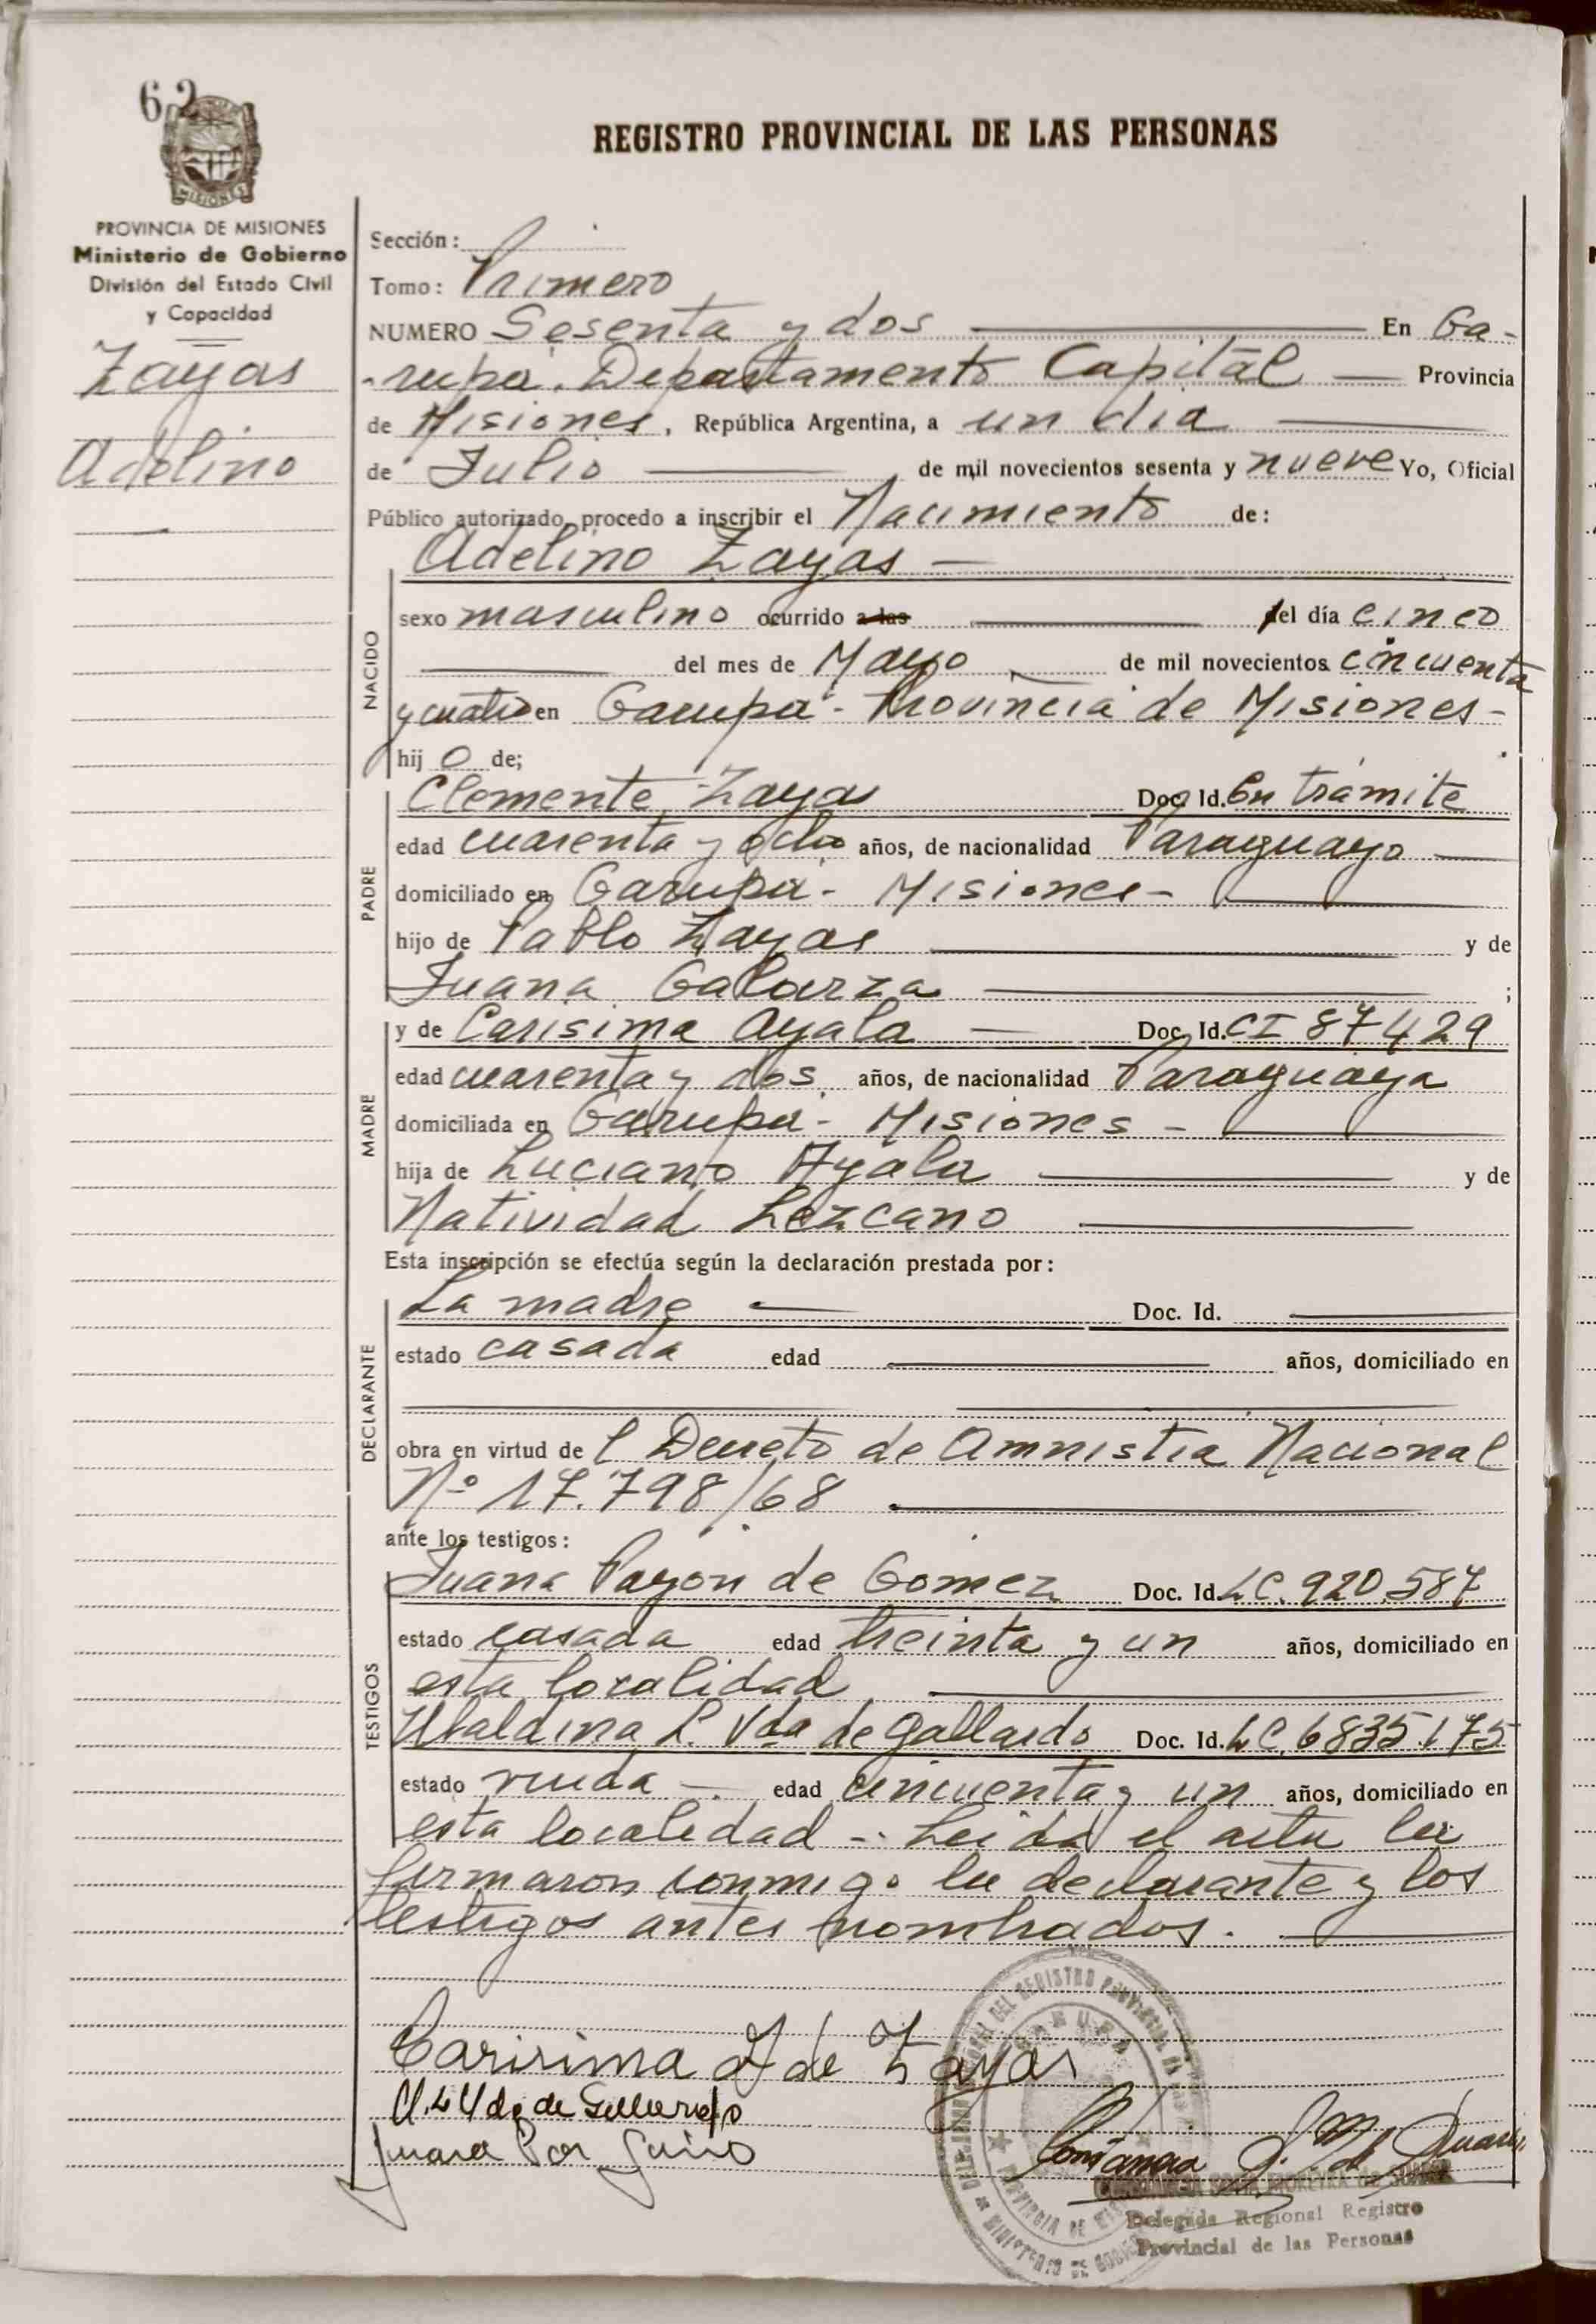 62
REGISTRO PROVINCIAL DE LAS PERSONAS
MISIONES
PROVINCIA DE MISIONES
Ministerio de Gobierno
División del Estado Civil
y Capacidad
Zayas
Adelino
Sección:
Tomo: Primero
NUMERO Sesenta y dos En Ga-
rupa. Departamento Capital Provincia
de Misiones, República Argentina, a un dia
de Julio de mil novecientos sesenta y nueve Yo, Oficial
Público autorizado, procedo a inscribir el Nacimiento de:
NACIDO
Adelino Zayas
sexo masculino ocurrido a las del día cinco
del mes de Mayo de mil novecientos cincuenta
y cuatro en Garupa - Provincia de Misiones -
hij o de;
PADRE
Clemente Zayas Doc. Id. En trámite
edad cuarenta y ocho años, de nacionalidad Paraguayo
domiciliado en Garupa - Misiones -
hijo de Pablo Zayas y de
Juana Galarza ;
MADRE
y de Carisima Ayala Doc. Id. CI 87429
edad cuarenta y dos años, de nacionalidad Paraguaya
domiciliada en Garupa - Misiones -
hija de Luciano Ayala y de
Natividad Lezcano
Esta inscripción se efectúa según la declaración prestada por:
DECLARANTE
La madre Doc. Id.
estado casada edad años, domiciliado en
obra en virtud de l Decreto de Amnistia Nacional
Nº 17.798/68
ante los testigos:
TESTIGOS
Juana Payon de Gomez Doc. Id. LC. 920.587
estado casada edad treinta y un años, domiciliado en
esta localidad
Ubaldina L. Vda de Gallardo Doc. Id. LC. 6835.175
estado viuda edad cincuenta y un años, domiciliado en
esta localidad - Leida el acta la
firmaron conmigo la declarante y los
testigos antes nombrados.
Carisima A de Zayas
U. L Vda de Gallardo
Juana
Constancia S. M. de Duarte
Delegada Regional Registro
Provincial de las Personas